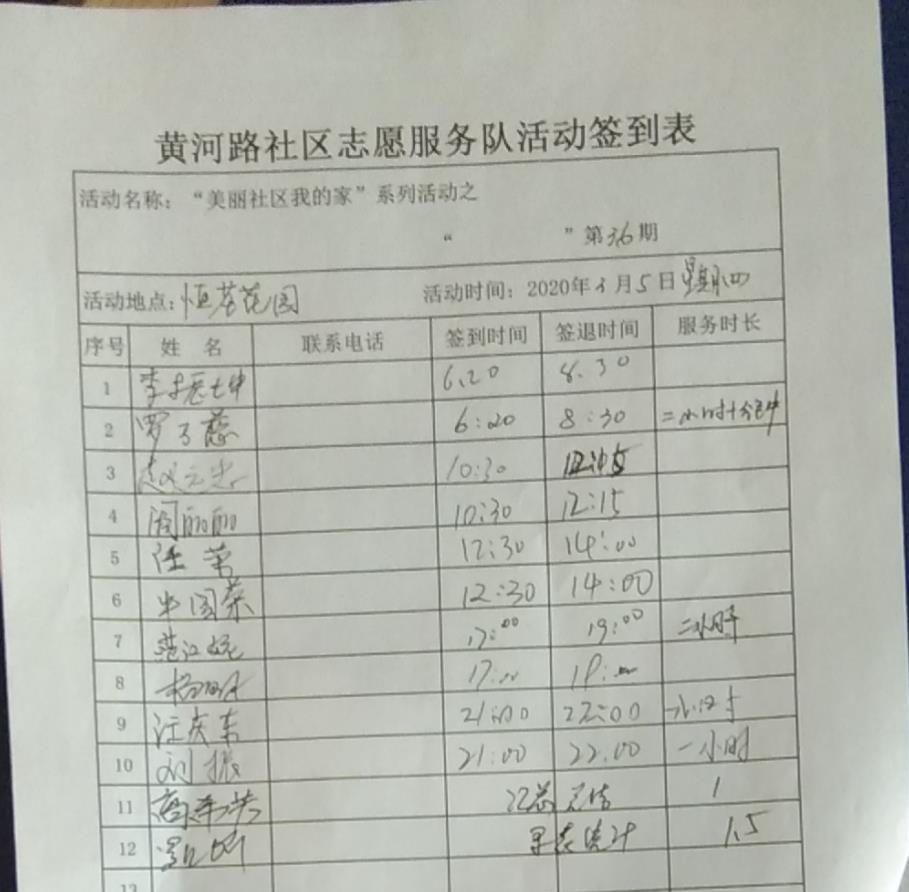 黄河路社区志愿服务队活动签到表
活动名称：“美丽社区我的家”系列活动之
“ ”第36期
活动地点：恒茗花园 活动时间：2020年 月5日星期四
序号 姓名 联系电话 签到时间 签退时间 服务时长
1 6.20 8.30
2 罗子慈 6:20 8:30 二小时十分钟
3 赵元忠 10:30
4 周丽丽 10:30 12:15
5 任苇 12:30 14:00
6 12:30 14:00
7 范江婉 17:00 19:00 二小时
8 17:00 19:00
9 汪庆东 21:00 22:00 一小时
10 刘振 21:00 22.00 一小时
11 高 1
12 1.5
13